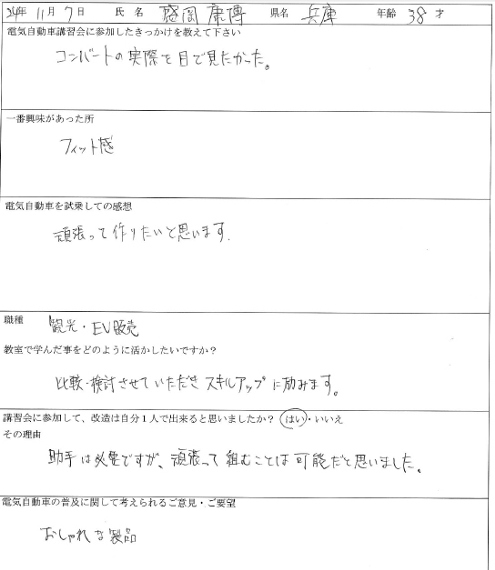 24年 11月 7日 氏名 盛岡 康博 県名 兵庫 年齢 38才
電気自動車講習会に参加したきっかけを教えて下さい
コンバートの実際を目で見たかった。
一番興味があった所
フィット感
電気自動車を試乗しての感想
頑張って作りたいと思います.
職種 観光・EV販売
教室で学んだ事をどのように活かしたいですか?
比較・検討させていただきスキルアップに励みます。
講習会に参加して、改造は自分1人で出来ると思いましたか? はい・いいえ
その理由
助手は必要ですが、頑張って組むことは可能だと思いました。
電気自動車の普及に関して考えられるご意見・ご要望
おしゃれな製品